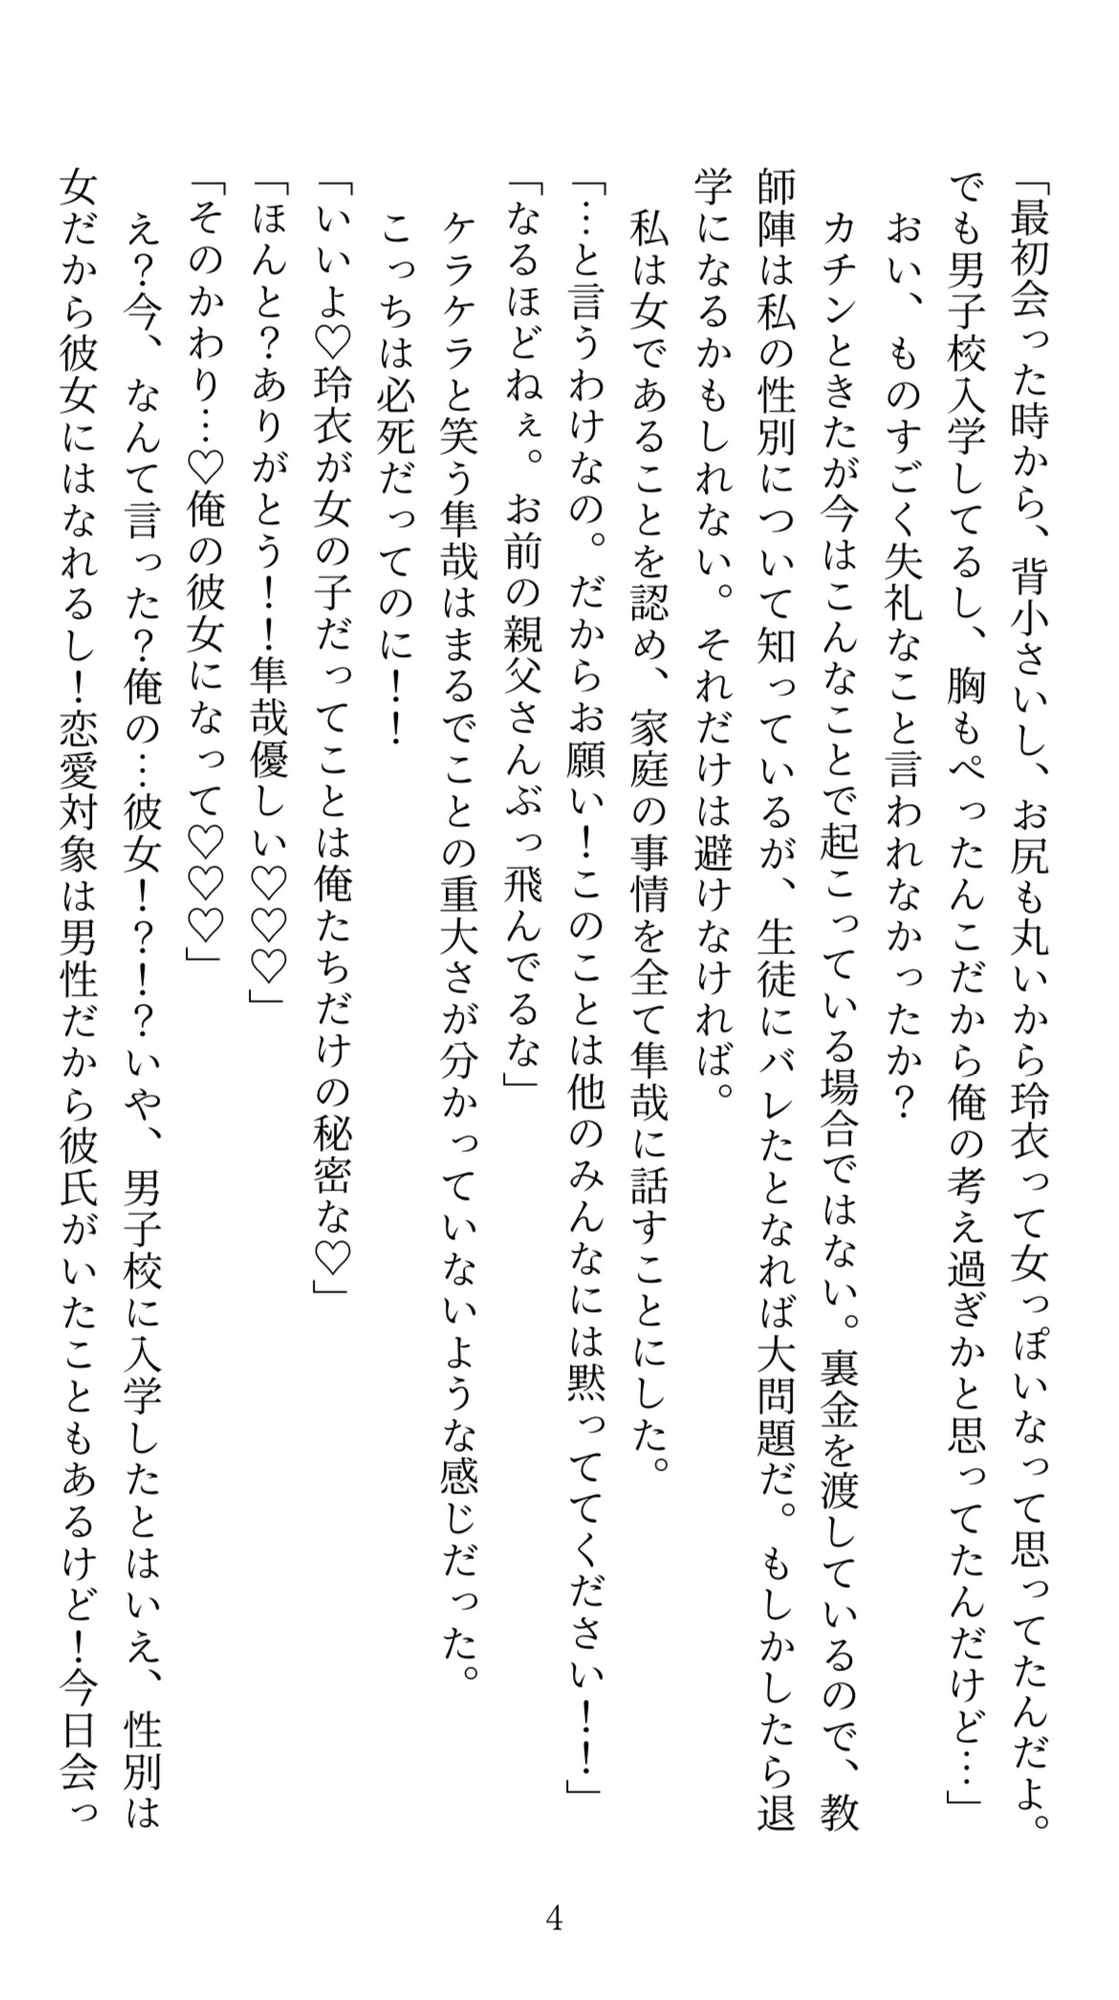 「最初会った時から、背小さいし、お尻も丸いから玲衣って女っぽいなって思ってたんだよ。
でも男子校入学してるし、胸もぺったんこだから俺の考え過ぎかと思ってたんだけど…」
　おい、ものすごく失礼なこと言われなかったか？
　カチンときたが今はこんなことで起こっている場合ではない。裏金を渡しているので、教
師陣は私の性別について知っているが、生徒にバレたとなれば大問題だ。もしかしたら退
学になるかもしれない。それだけは避けなければ。
　私は女であることを認め、家庭の事情を全て隼哉に話すことにした。
「…と言うわけなの。だからお願い！このことは他のみんなには黙っててください！！」
「なるほどねぇ。お前の親父さんぶっ飛んでるな」
　ケラケラと笑う隼哉はまるでことの重大さが分かっていないような感じだった。
　こっちは必死だってのに！！
「いいよ♡玲衣が女の子だってことは俺たちだけの秘密な♡」
「ほんと？ありがとう！！隼哉優しい♡♡♡」
「そのかわり…♡俺の彼女になって♡♡♡」
　え？今、なんて言った？俺の…彼女！？！？いや、男子校に入学したとはいえ、性別は
女だから彼女にはなれるし！恋愛対象は男性だから彼氏がいたこともあるけど！今日会っ
4